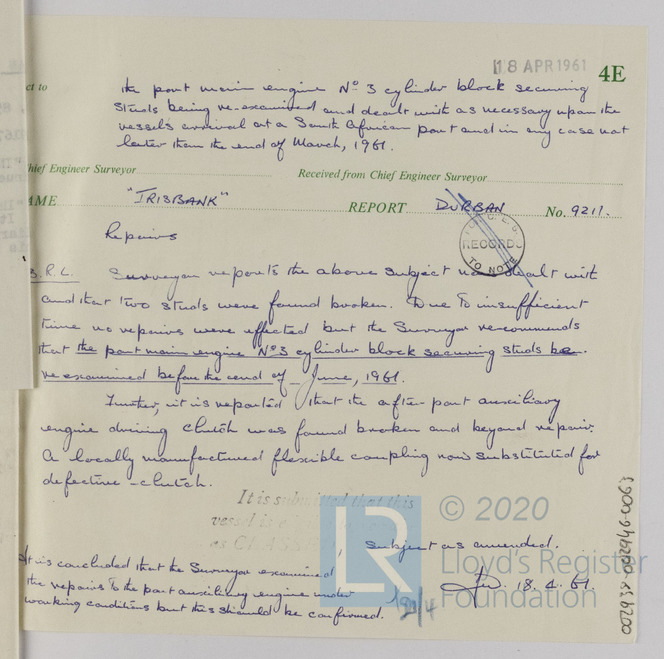 18 APR 1961
4E
ct to
the port main engine No 3 cylinder block securing
studs being re-examined and dealt with as necessary upon the
vessel's arrival at a South African port and in any case not
later than the end of March, 1961.
Chief Engineer Surveyor
Received from Chief Engineer Surveyor
AME "IRISBANK" REPORT DURBAN No. 9211.
RECORDS
TO NOTE
Repairs
S.R.L. Surveyor reports the above subject now dealt with
and that two studs were found broken. Due to insufficient
time no repairs were effected but the Surveyor recommends
that the port main engine No 3 cylinder block securing studs be
re examined before the end of June, 1961.
Further, it is reported that the after port auxiliary
engine driving clutch was found broken and beyond repair.
A locally manufactured flexible coupling now substituted for
defective clutch.
It is submitted that this
vessel is
as CLASS
, subject as amended.
18.4.61.
It is concluded that the Surveyor examined
the repairs to the port auxiliary engine under
working conditions but this should be confirmed.
© 2020
Lloyd's Register
Foundation
002935-002944-0063